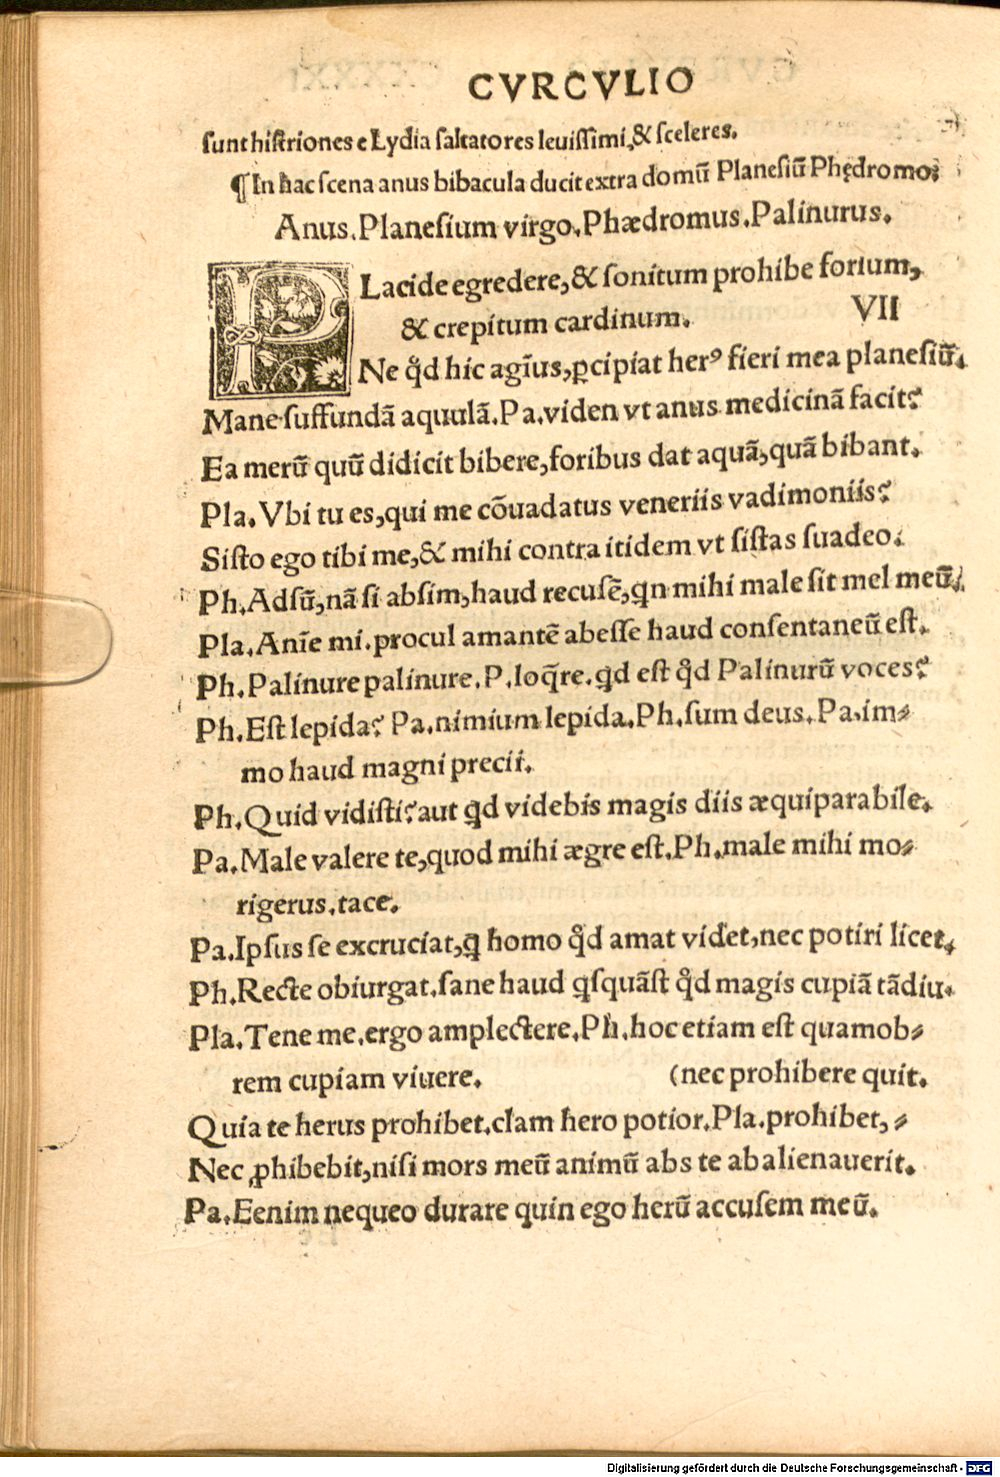 CVRCVLIO
sunt histriones e Lydia saltatores leuissimi, & sceleres.
¶ In hac scena anus bibacula ducit extra domū Planesiū Phędromo:
Anus. Planesium virgo. Phædromus. Palinurus.
PLacide egredere, & sonitum prohibe forium,
& crepitum cardinum. VII
Ne qd hic agīus, ꝑcipiat herꝰ fieri mea planesiū.
Mane suffundā aquulā. Pa. viden vt anus medicinā facit?
Ea merū quū didicit bibere, foribus dat aquā, quā bibant.
Pla. Vbi tu es, qui me cōuadatus veneriis vadimoniis?
Sisto ego tibi me, & mihi contra itidem vt sistas suadeo.
Ph. Adsū, nā si absim, haud recusē, qn mihi male sit mel meū.
Pla. Anīe mi. procul amantē abesse haud consentaneū est.
Ph. Palinure palinure. P. loq̄re. qd est qd Palinurū voces?
Ph. Est lepida? Pa. nimium lepida. Ph. sum deus. Pa. im-
mo haud magni precii.
Ph. Quid vidisti? aut qd videbis magis diis æquiparabile.
Pa. Male valere te, quod mihi ægre est. Ph. male mihi mo-
rigerus. tace.
Pa. Ipsus se excruciat, q homo qd amat videt, nec potiri licet.
Ph. Recte obiurgat. sane haud qsquāst qd magis cupiā tādiu.
Pla. Tene me. ergo amplectere. Ph. hoc etiam est quamob-
rem cupiam viuere. (nec prohibere quit.
Quia te herus prohibet. clam hero potior. Pla. prohibet, -
Nec ꝓhibebit, nisi mors meū animū abs te abalienauerit.
Pa. Eenim nequeo durare quin ego herū accusem meū.
Digitalisierung gefördert durch die Deutsche Forschungsgemeinschaft - DFG